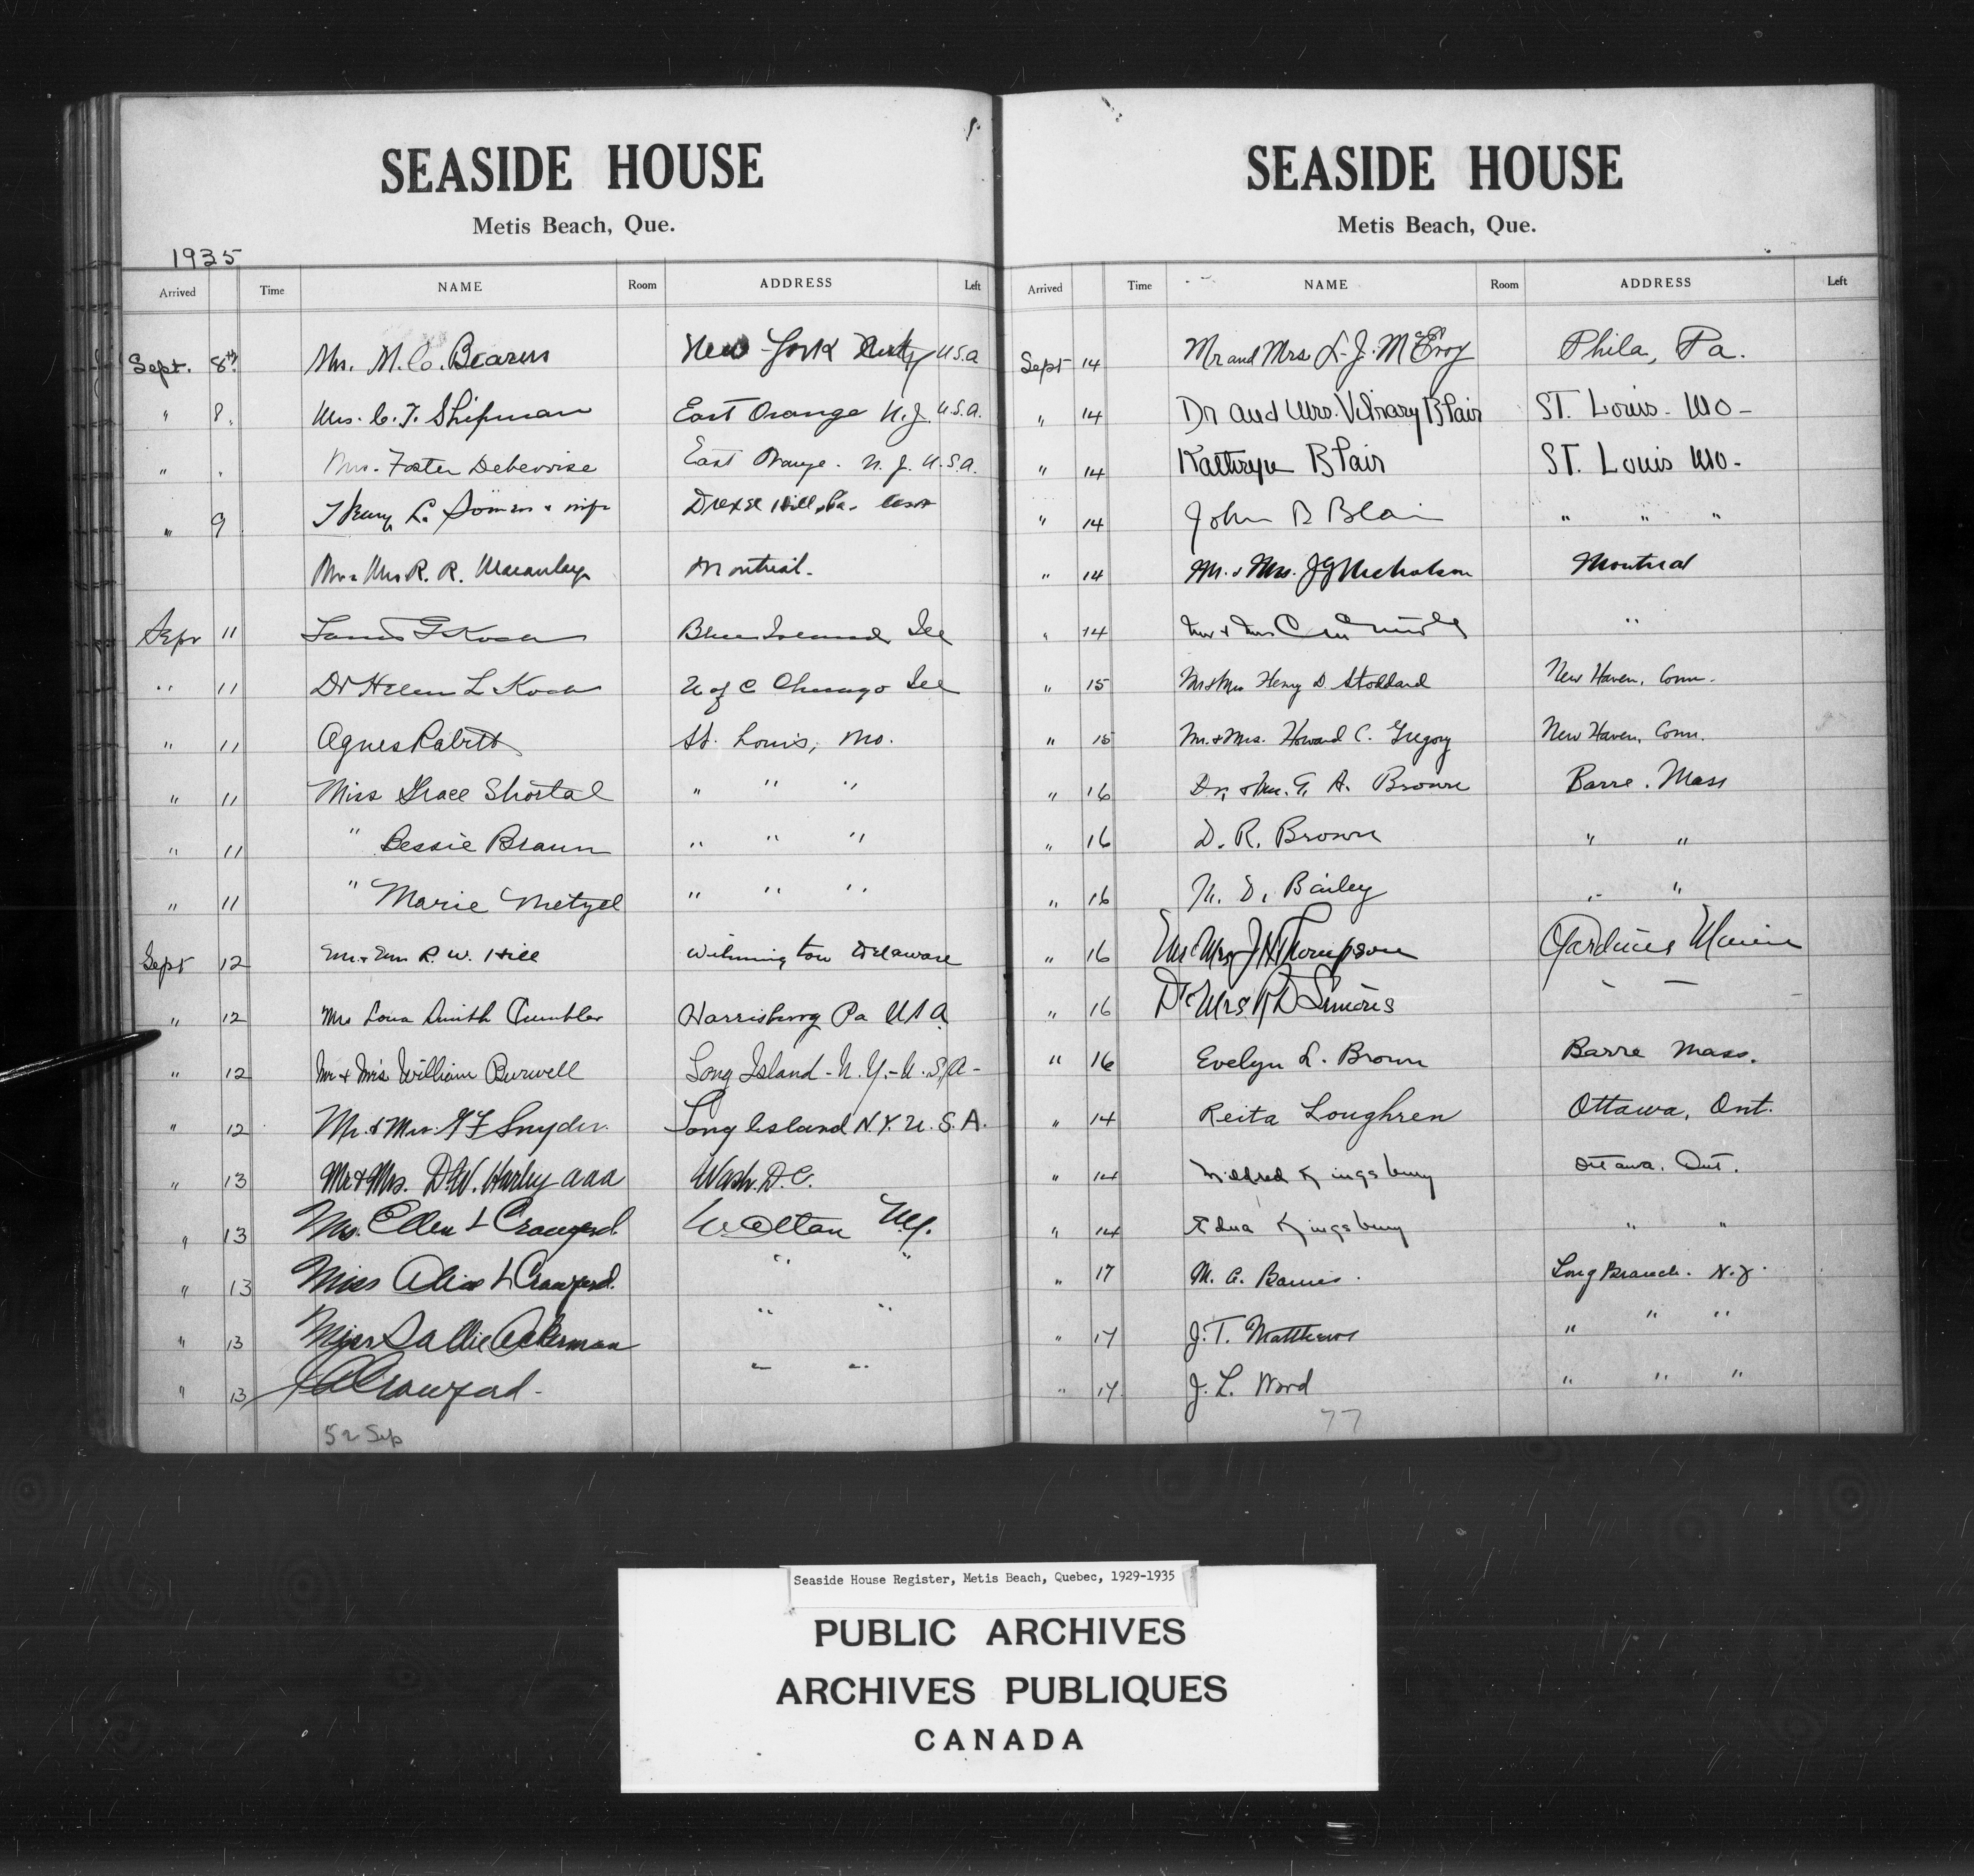 SEASIDE HOUSE
Metis Beach, Que.
1935
Arrived Time NAME Room ADDRESS Left
Sept. 8th Mrs. M. C. New York U.S.A
" 8. Mrs. C. T. Shipman East Orange N.J. U.S.A.
" " Mrs. Foster Debevoise East Orange. N. J. U.S.A.
" 9 L. & wife Drexel Hill, Pa.
Mr & Mrs R. R. Macaulay Montreal.
Sept 11 Koch Blue Island Ill
" 11 Dr Helen L Koch U of C Chicago Ill
" 11 Agnes St. Louis, Mo.
" 11 Miss Grace Shortal " " "
" 11 " Bessie Braun " " "
" 11 " Marie Metzel " " "
Sept 12 Mr & Mrs R. W. Hill Wilmington Delaware
" 12 Mrs Smith Harrisburg Pa U S A
" 12 Mr & Mrs William Burwell Long Island - N.Y. - U.S.A -
" 12 Mr. & Mrs. Snyder. Long Island N.Y. U.S.A.
" 13 Mr & Mrs. D.W. Harley aaa Wash. D.C.
" 13 Mrs. Ellen L Crawford Walton N.Y.
" 13 Miss Alice L Crawford. " "
" 13 Miss Sallie Ackerman " "
" 13 Crawford - " "
52 Sep
SEASIDE HOUSE
Metis Beach, Que.
Arrived Time NAME Room ADDRESS Left
Sept 14 Mr and Mrs L. J. McEvoy Phila, Pa.
" 14 Dr and Mrs. Vilray Blair ST. Louis - MO -
" 14 Kathryn Blair ST. Louis MO -
" 14 John B Blair " " "
" 14 Mr. & Mrs. J G Nicholson Montreal
" 14 Mr & Mrs "
" 15 Mr & Mrs Henry D Stoddard New Haven, Conn.
" 15 Mr. & Mrs. Howard C. Gregory New Haven, Conn.
" 16 Dr. & Mrs. G. A. Brown Barre. Mass
" 16 D. R. Brown " "
" 16 N. D. Bailey " "
" 16 Mr Mrs J H Thompson Gardiner Maine
" 16 Dr Mrs R D Simons - - -
" 16 Evelyn L. Brown Barre Mass.
" 14 Reita Loughren Ottawa, Ont.
" 14 Mildred Kingsbury Ottawa, Ont.
" 14 Edna Kingsbury " "
" 17 M. A. Long Branch. N.J.
" 17 J. T. Matthews " " "
" 17 J. L. Ward " " "
77
Seaside House Register, Metis Beach, Quebec, 1929-1935
PUBLIC ARCHIVES
ARCHIVES PUBLIQUES
CANADA